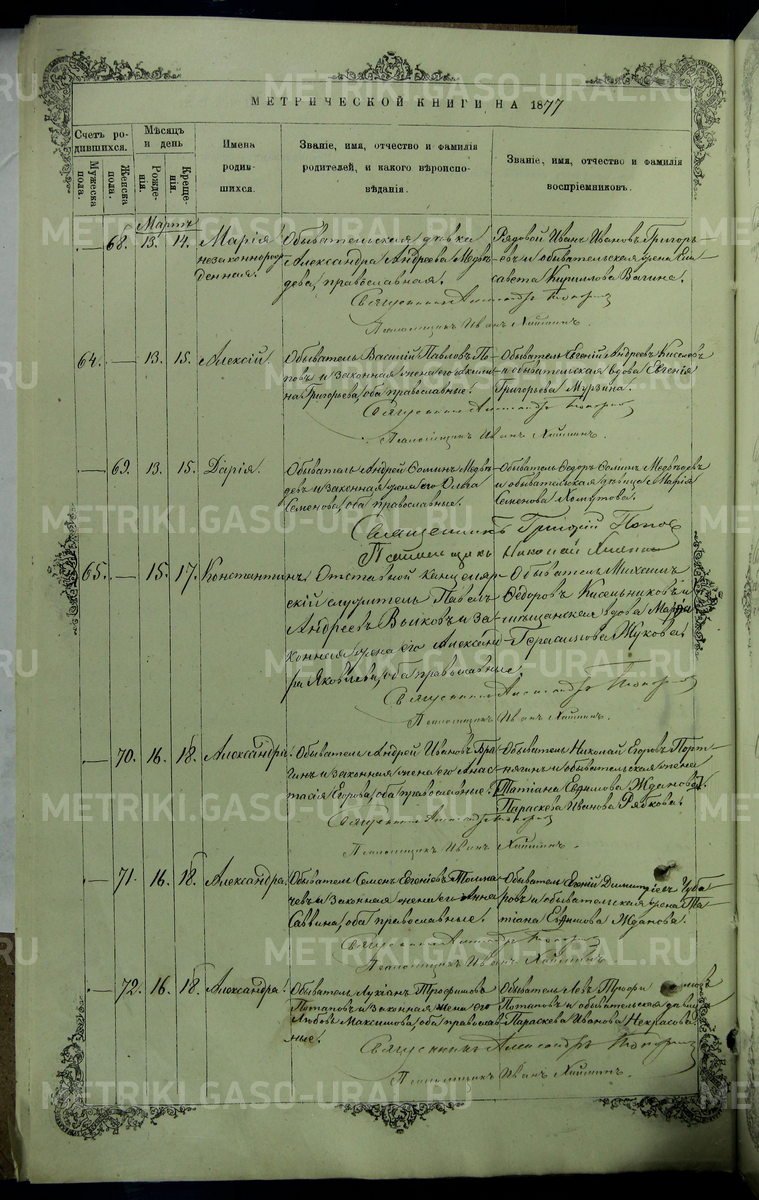 МЕТРИЧЕСКОЙ КНИГИ НА 1877
Счетъ родившихся.
Мужеска пола.
Женска пола.
Мѣсяцъ и день
Рожденія.
Крещенія.
Имена родившихся.
Званіе, имя, отчество и фамилія родителей, и какого вѣроисповѣданія.
Званіе, имя, отчество и фамилія воспріемниковъ.
Мартъ
— 68. 13. 14. Марія незаконнорожденная.
Обывательская дѣвка
Александра Андреева Медвѣ-
дева, православная.
Рядовой Иванъ Ивановъ Григорь-
евъ и обывательская жена Ели-
савета Кириллова Вагина.
Священникъ Александръ
Псаломщикъ Иванъ
64. — 13. 15. Алексій.
Обыватель Василій Павловъ По-
повъ и законная жена его Акили-
на Григорьева, оба православные.
Обыватель Евгеній Андреевъ Киселевъ
и обывательская вдова Евгенія
Григорьева Мурзина.
Священникъ Александръ
Псаломщикъ Иванъ
— 69. 13. 15. Дарія.
Обыватель Андрей Ѳоминъ Медвѣ-
девъ и законная жена его Ольга
Семенова, оба православные.
Обыватель Ѳедоръ Ѳоминъ Медвѣдевъ
и обывательская дѣвица Марія
Семенова Хомутова.
Священникъ Григорій Поповъ
Псаломщикъ Николай
65. — 15. 17. Константинъ.
Отставной канцеляр-
скій служитель Павелъ
Андреевъ Волковъ и за-
конная жена его Алексан-
ра Яковлева, оба православные.
Обыватель Михаилъ
Ѳедоровъ Кисельниковъ и
мѣщанская вдова Марѳа
Герасимова Жукова.
Священникъ Александръ
Псаломщикъ Иванъ
— 70. 16. 18. Александра.
Обыватель Андрей Ивановъ
и законная жена его Анас-
тасія Егорова, оба православные.
Обыватель Николай Егоровъ Порт-
нягинъ и обывательская жена
Татіана Евфимова Жданова.
Параскева Иванова Рябкова.
Священникъ Александръ
Псаломщикъ Иванъ
— 71. 16. 18. Александра.
Обыватель Семенъ Евгеніевъ Толма-
чевъ и законная жена его Анна
Саввина, оба православные.
Обыватель Евгеній Димитріевъ Чуба-
ровъ и обывательская жена Та-
тіана Евфимова Жданова.
Священникъ Александръ
Псаломщикъ Иванъ
— 72. 16. 18. Александра.
Обыватель Лукіанъ Трофимовъ
Потаповъ и законная жена его
Любовь Максимова, оба православ-
ные.
Обыватель Левъ Трофимовъ
Потаповъ и обывательская дѣвица
Параскева Иванова Некрасова.
Священникъ Александръ
Псаломщикъ Иванъ
METRIKI.GASO-URAL.RU